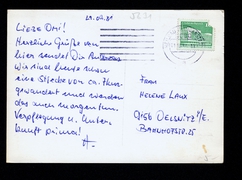 21.09.81
Liebe Omi!
Herzliche Grüße von
hier sendet Dir
wir sind heute schon
eine Strecke von ca. 7km
gewandert und werden
das auch morgen tun.
Verpflegung u. Unter-
kunft prima!
Frau
Helene Laux
9156 Oelsnitz/E.
Bahnhofstr. 25